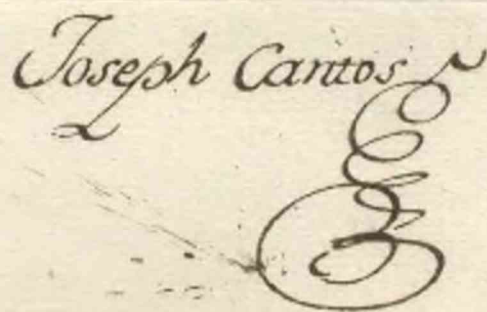 Joseph Cantos